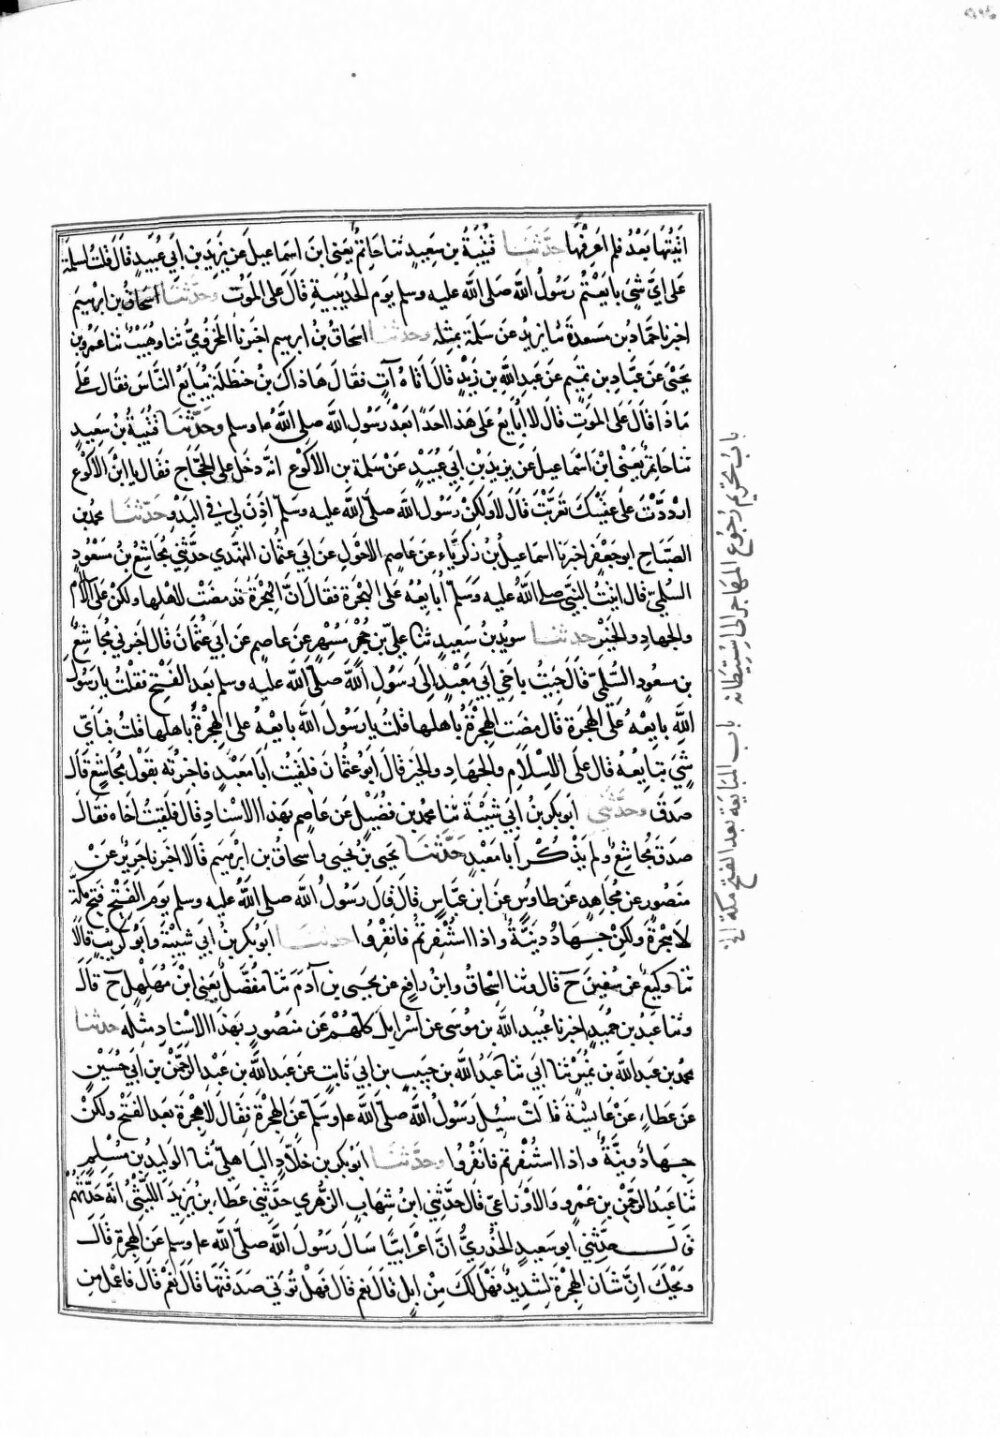 اتيتها بعد فلم اعرفها حدثنا قتيبة بن سعيد ثنا حاتم يعنى ابن اسماعيل عن يزيد بن ابي عبيد قال قلت لسلمة
على اي شي بايعتم رسول الله صلى الله عليه وسلم يوم الحديبية قال على الموت وحدثنا اسحاق بن ابرهيم
اخبرنا حماد بن مسعدة ثنا يزيد عن سلمة بمثله وحدثنا اسحاق بن ابرهيم اخبرنا المخزومي ثنا وهيب ثنا عمرو بن
يحيى عن عباد بن تميم عن عبد الله بن زيد قال اتاه آت فقال هاذاك بن حنظلة يبايع الناس فقال على
ماذا قال على الموت قال لا ابايع على هذا احدا بعد رسول الله صلى الله عليه وسلم وحدثنا قتيبة بن سعيد
ثنا حاتم يعنى ابن اسماعيل عن يزيد بن ابي عبيد عن سلمة بن الاكوع انه دخل على الحجاج فقال يا ابن الاكوع
ارتددت على عقبيك تعربت قال لا ولكن رسول الله صلى الله عليه وسلم اذن لي في البدو حدثنا محمد بن
الصباح ابو جعفر اخبرنا اسماعيل بن زكرياء عن عاصم الاحول عن ابي عثمان النهدي حدثني مجاشع بن مسعود
السلمي قال اتيت النبي صلى الله عليه وسلم ابايعه على الهجرة فقال ان الهجرة قد مضت لاهلها ولكن على الاسلام
والجهاد والخير حدثنا سويد بن سعيد ثنا علي بن مسهر عن عاصم عن ابي عثمان قال اخبرني مجاشع
بن مسعود السلمي قال جيت باخي ابي معبد الى رسول الله صلى الله عليه وسلم بعد الفتح فقلت يا رسول
الله بايعه على الهجرة قال مضت الهجرة باهلها قلت يا رسول الله بايعه على الهجرة باهلها قلت فباي
شي تبايعه قال على الاسلام والجهاد والخير قال ابو عثمان فلقيت ابا معبد فاخبرته بقول مجاشع قال
صدق وحدثني ابو بكر بن ابي شيبة ثنا محمد بن فضيل عن عاصم بهذا الاسناد قال فلقيت اخاه فقال
صدق مجاشع ولم يذكر ابا معبد حدثنا يحيى بن يحيى واسحاق بن ابرهيم قالا اخبرنا جرير عن
منصور عن مجاهد عن طاوس عن ابن عباس قال قال رسول الله صلى الله عليه وسلم يوم الفتح فتح مكة
لا هجرة ولكن جهاد ونية واذا استنفرتم فانفروا حدثنا ابو بكر بن ابي شيبة وابو كريب قالا
ثنا وكيع عن سفين ح قال وثنا اسحاق وابن رافع عن يحيى بن آدم ثنا مفضل يعنى ابن مهلهل ح قال
وثنا عبد بن حميد اخبرنا عبيد الله بن موسى عن اسرايل كلهم عن منصور بهذا الاسناد مثله حدثنا
محمد بن عبد الله بن نمير ثنا ابي ثنا عبد الله بن حبيب بن ابي ثابت عن عبد الله بن عبد الرحمن بن ابي حسين
عن عطاء عن عايشة قالت سئل رسول الله صلى الله عليه وسلم عن الهجرة فقال لا هجرة بعد الفتح ولكن
جهاد ونية واذا استنفرتم فانفروا وحدثنا ابو بكر بن خلاد الباهلي ثنا الوليد بن مسلم
ثنا عبد الرحمن بن عمرو الاوزاعي قال حدثني ابن شهاب الزهري حدثني عطاء بن يزيد الليثي انه حدثهم
قال حدثني ابو سعيد الخدري ان اعرابيا سال رسول الله صلى الله عليه وسلم عن الهجرة قال
ويحك ان شان الهجرة لشديد فهل لك من ابل قال نعم قال فهل توتي صدقتها قال نعم قال فاعمل من
باب تحريم رجوع المهاجر الى استيطانه
باب المبايعة بعد الفتح مكة الخ